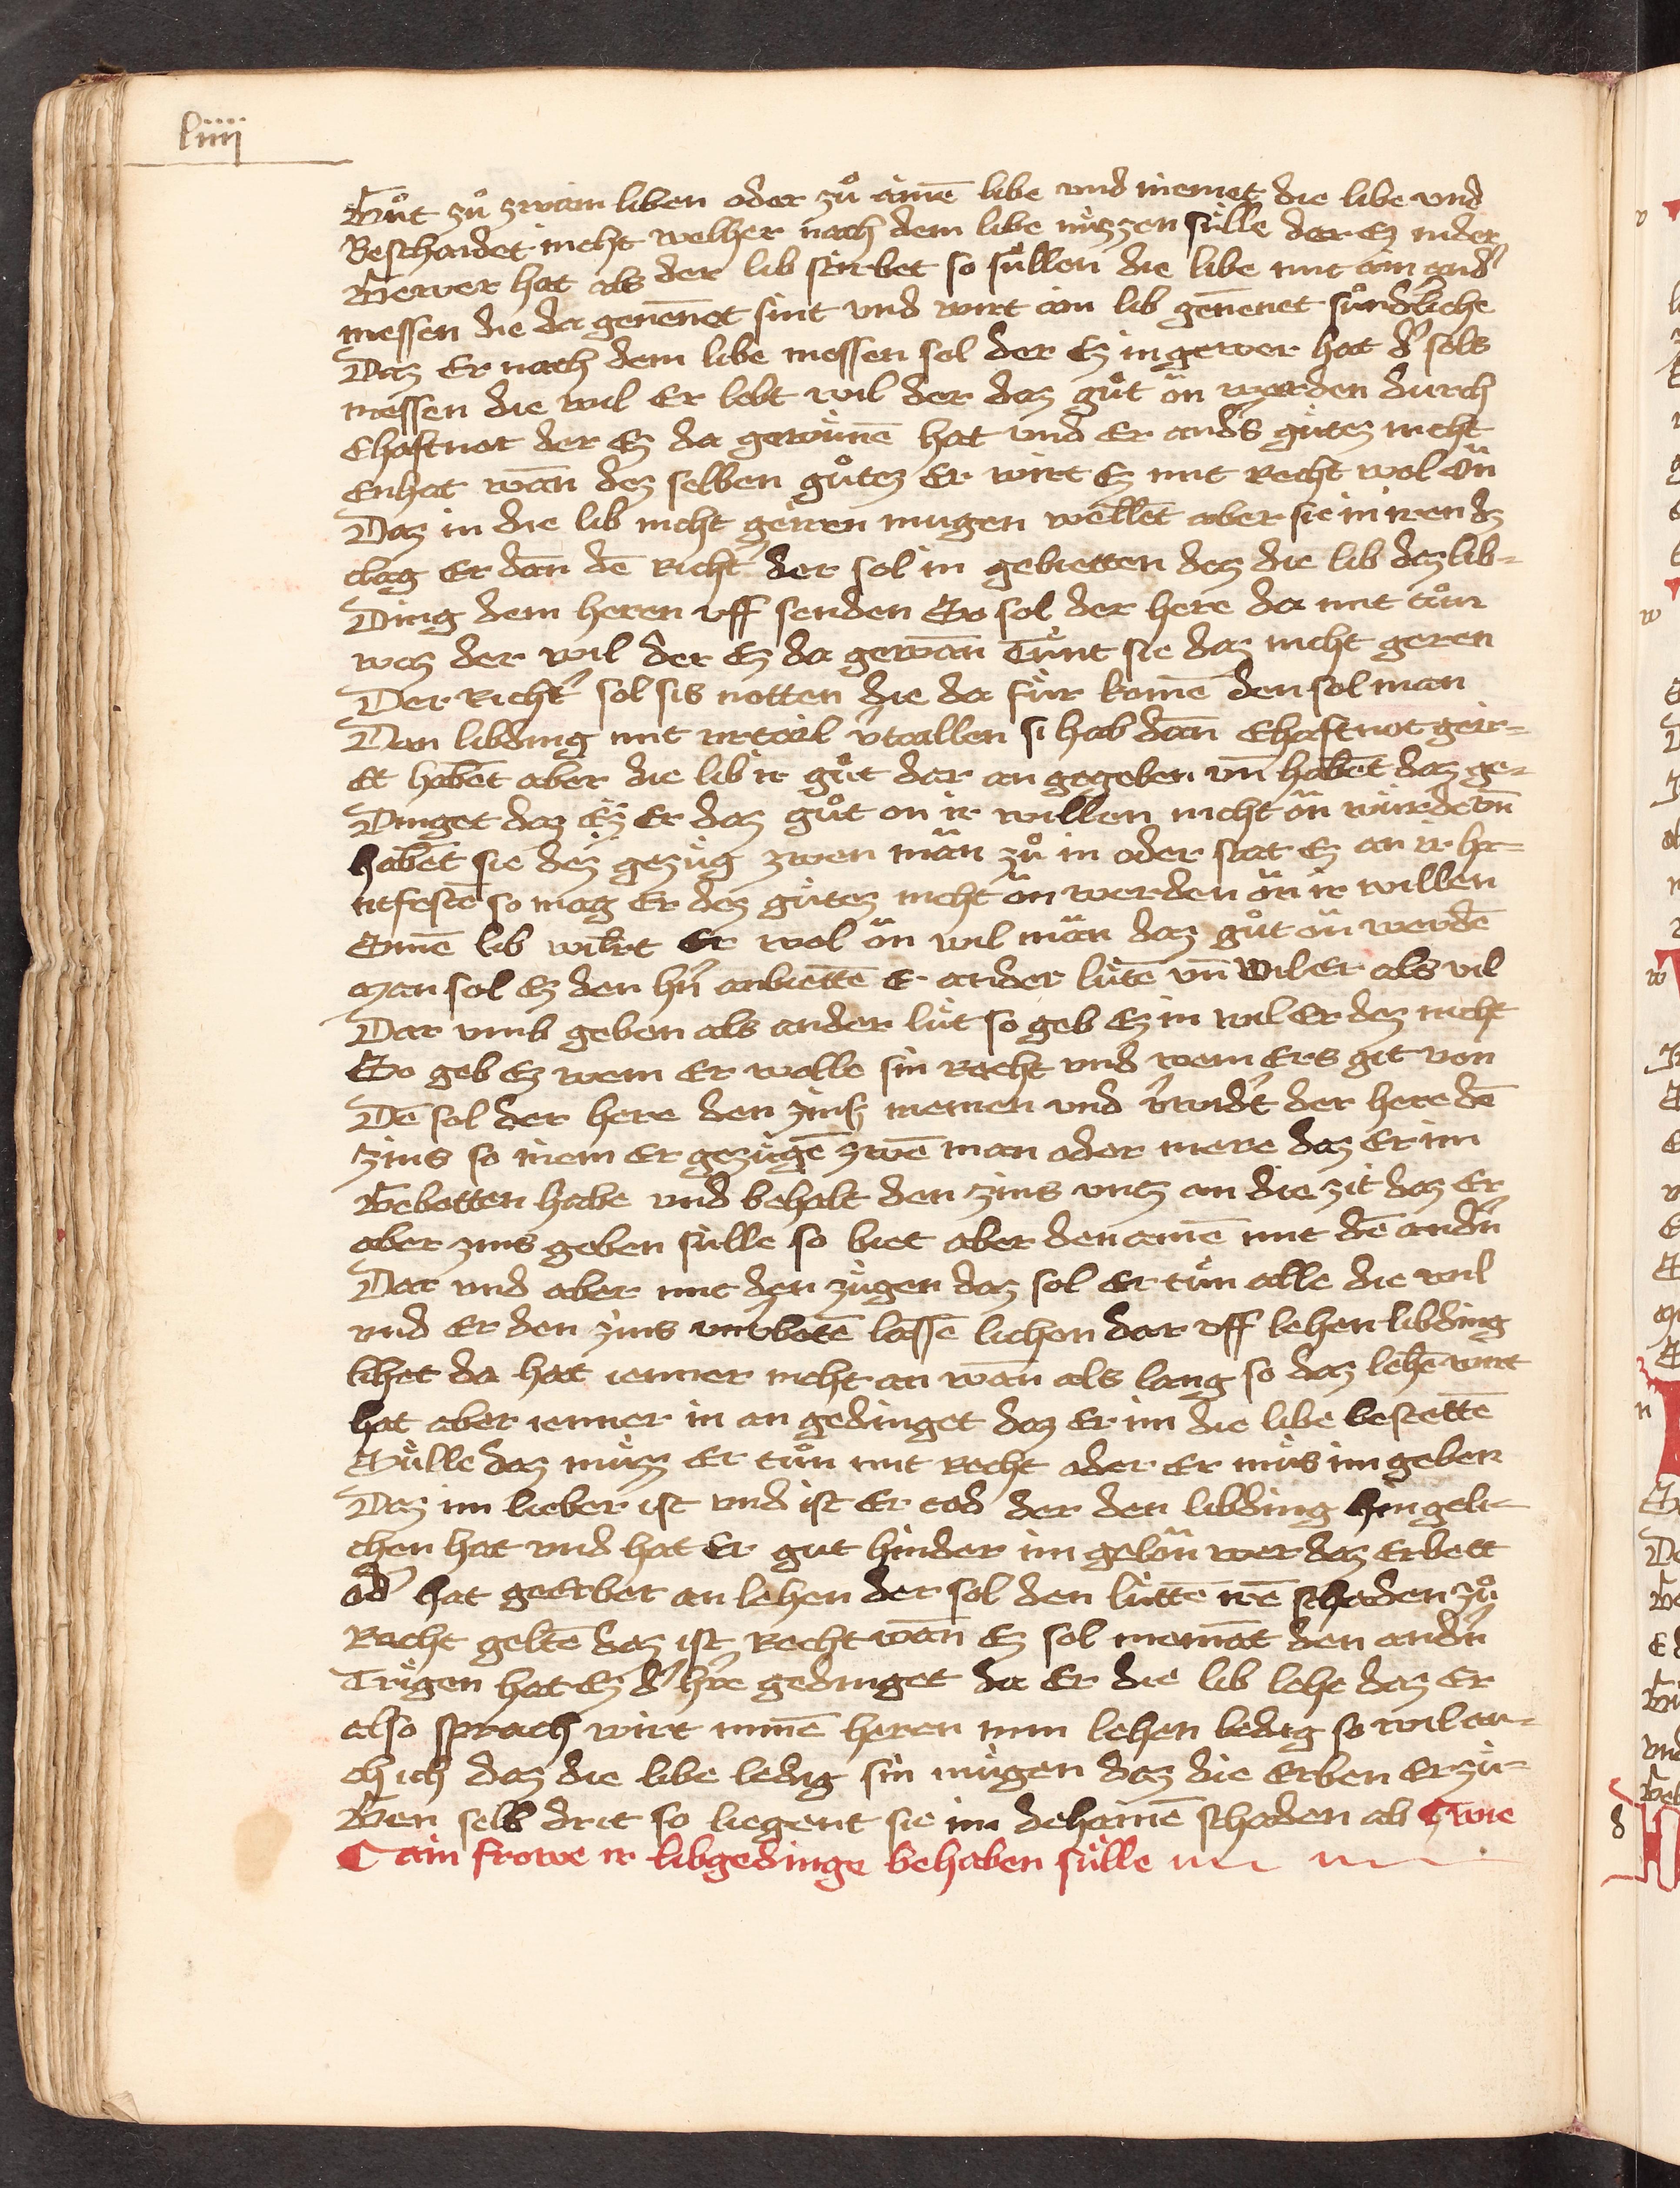 liiij
Gůt zů zwain liben oder zů ainē libe vnd niemet die libe vnd
Beschaidet nicht welher nach dem libe niezzen sülle der ez in der
Gewer hat als der lib stirbet so süllen die libe mit ain and'
niessen die da genēnet sint vnd wirt ain lib genēnet sünd'liche
Daz er nach dem libe niessen sol der ez in gewer hat d' sols
niessen die wil er lebt wil der daz gůt ön werden durch
Ehaftnot der ez da gewunē hat vnd er and's gůtez nicht
enhat wān dez selben gůtez er wirt ez mit Recht wol ön
Daz in die lib nicht geirren mugen wellet aber sie in irren dz
clag er dān dē Richt' der sol in gebietten daz die lib daz lib-
Ding dem heren vff senden So sol der here da mit tůn
waz der wil der ez da gewān Tůnt sie daz nicht geren
Der Richt' sol sis notten die da für komē den sol man
Den libding mit vrtail v'taillen si hab dān Ehaftnot geir-
et habēt aber die lib ir gůt dar an gegeben vn̄ habēt daz ge-
Dinget daz ez er daz gůt on ir willen nicht ön würde vn̄
habēt sie dez gezüg zwen män zů in oder stat ez an ir ha-
ntfeste so mag er dez gůtez nicht ön werden ön ir willen
Einē lib wirt er wol ön wil män daz gůt ön werdē
man sol ez den h'n anbiettē e ander lütē vn̄ wil er als vil
Dar vmb geben als ander lüt so geb ez in wil er dez nicht
So geb ez wem er welle sin Recht vnd wem ers git von
Dē sol der here den zinß niemen vnd v'wid't der here dē
zins so niem er gezügē zwē man oder mere daz er im
Gebotten habe vnd behalt den zins vntz an die zit daz er
aber zins geben sülle so biet aber den ainē mit dē and'n
Dar vnd aber mit den zügen daz sol er tůn alle die wil
vnd er den zins lassē lichen dar vff lehen libding
lihet da hat ienner nicht an wān als lang so daz lehē wert
hat aber ienner in an gedinget daz er im die libe bestettē
Sülle daz můz er tůn mit Recht oder er můs im geben
Daz im lieber ist vnd ist er tod der den libding hin geli-
chen hat vnd hat er gut hinder im gelön wer daz erbett
od' hat geerbet an lehen der sol den lüttē irē schaden zů
Recht geltē daz ist Recht wān ez sol niemāt den and'n
Trigen hat ez d' h're gedinget da er die lib lehe daz er
also sprach wirt minē heren min lehen ledig so wil au-
ch ich daz die libe ledig sin mügen daz die erben erzü-
Gen selb drit so liegent sie im dehainē schaden ab Wie
ain frowe ir libgedinge behaben sülle